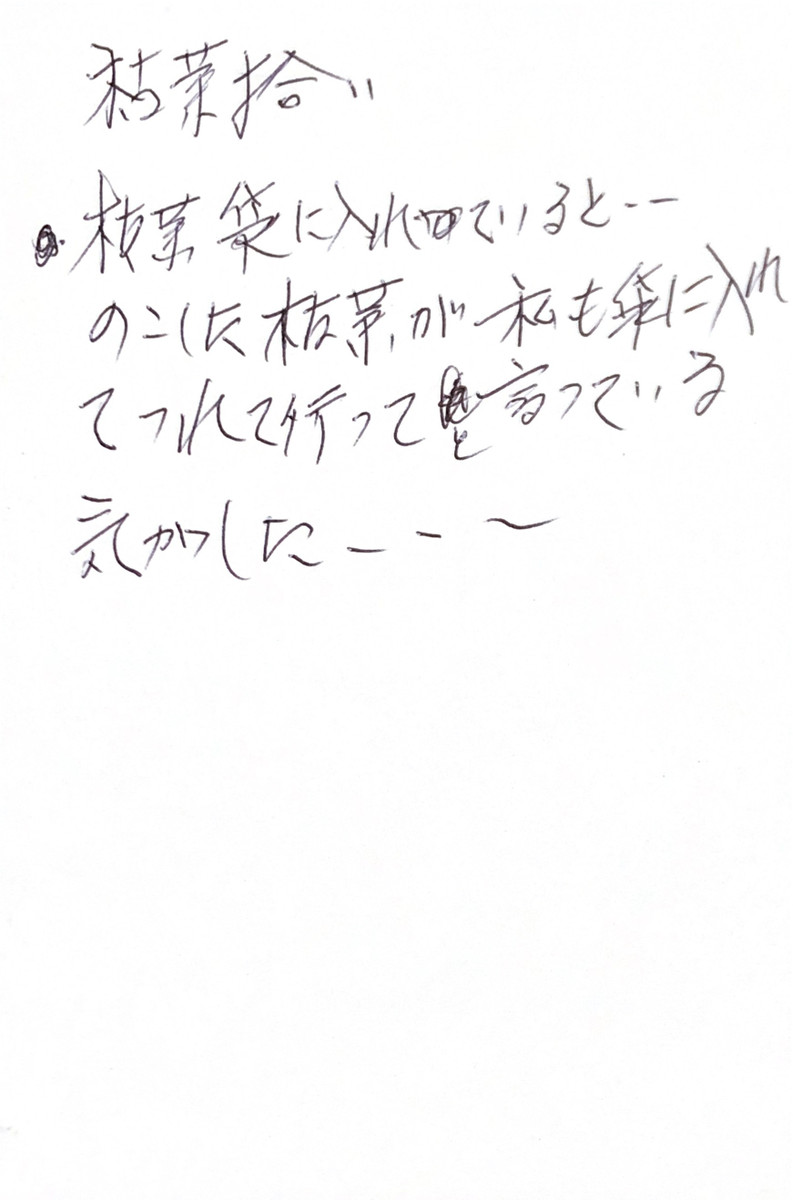 枯葉拾い
枯葉袋に入れていると--
のこした枯葉が私も袋に入れ
てつれて行ってと言っている
気がした--〜